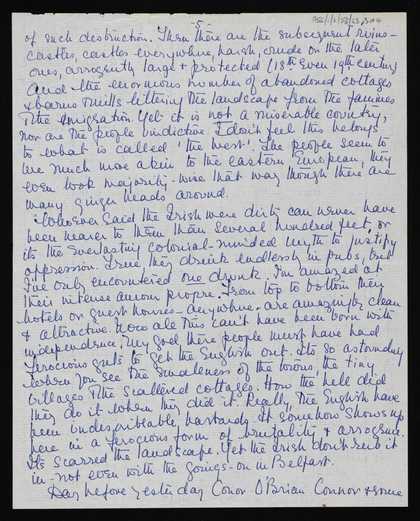 - 5 -
of such destruction. Then there are the subsequent ruins -
castles, castles everywhere, harsh, crude on the later
ones, arrogantly large & protected (18th even 19th century
and the enormous number of abandoned cottages
& barns & mills littering the landscape from the famines
& the emigration. Yet it is not a miserable country,
nor are the people vindictive. I don't feel this belongs
to what is called 'the west'. The people seem to
be much more akin to the eastern European, they
even look majority-wise that way though there are
many ginger heads around.
Whoever said the Irish were dirty can never have
been nearer to them than several hundred feet, or
its the everlasting colonial-minded myth to justify
oppression. True they drink endlessly in pubs, but
I've only encountered one drunk. I'm amazed at
their intense amour propre. From top to bottom their
hotels or guest houses - anywhere - are amazingly clean
& attractive. Now all this can't have been born with
independence. My god these people must have had
ferocious guts to get the English out. Its so astounding
when you see the smallness of the towns, the tiny
villages & the scattered cottages. How the hell did
they do it when they did it. Really, the English have
been indescribable bastards. It somehow shows up
here in a ferocious form of brutality & arrogance.
Its scarred the landscape. Yet the Irish don't rub it
in - not even with the goings-on in Belfast.
Day before yesterday Conor O'Brian Connor & some